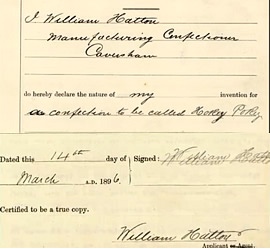 I William Hatton
Manufacturing Confectioner
Caversham
do hereby declare the nature of my invention for
a confection to be called Hokey Pokey
Dated this 14th day of Signed: William Hatton
March A.D. 1896.
Certified to be a true copy.
William Hatton
Applicant or Agent.